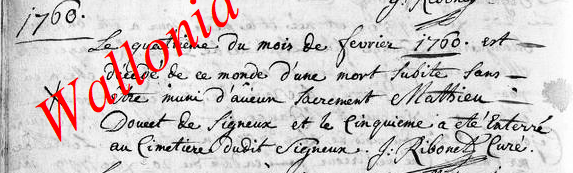 J. Ribonet
1760.
Le quatrieme du mois de fevrier 1760. est
décédé de ce monde d'une mort subite sans
être muni d'aucun sacrement Mathieu
Doucet de Signeux et le Cinquieme a eté Enterré
au Cimetiere dudit Signeux. J. Ribonet Curé.
Wallonia